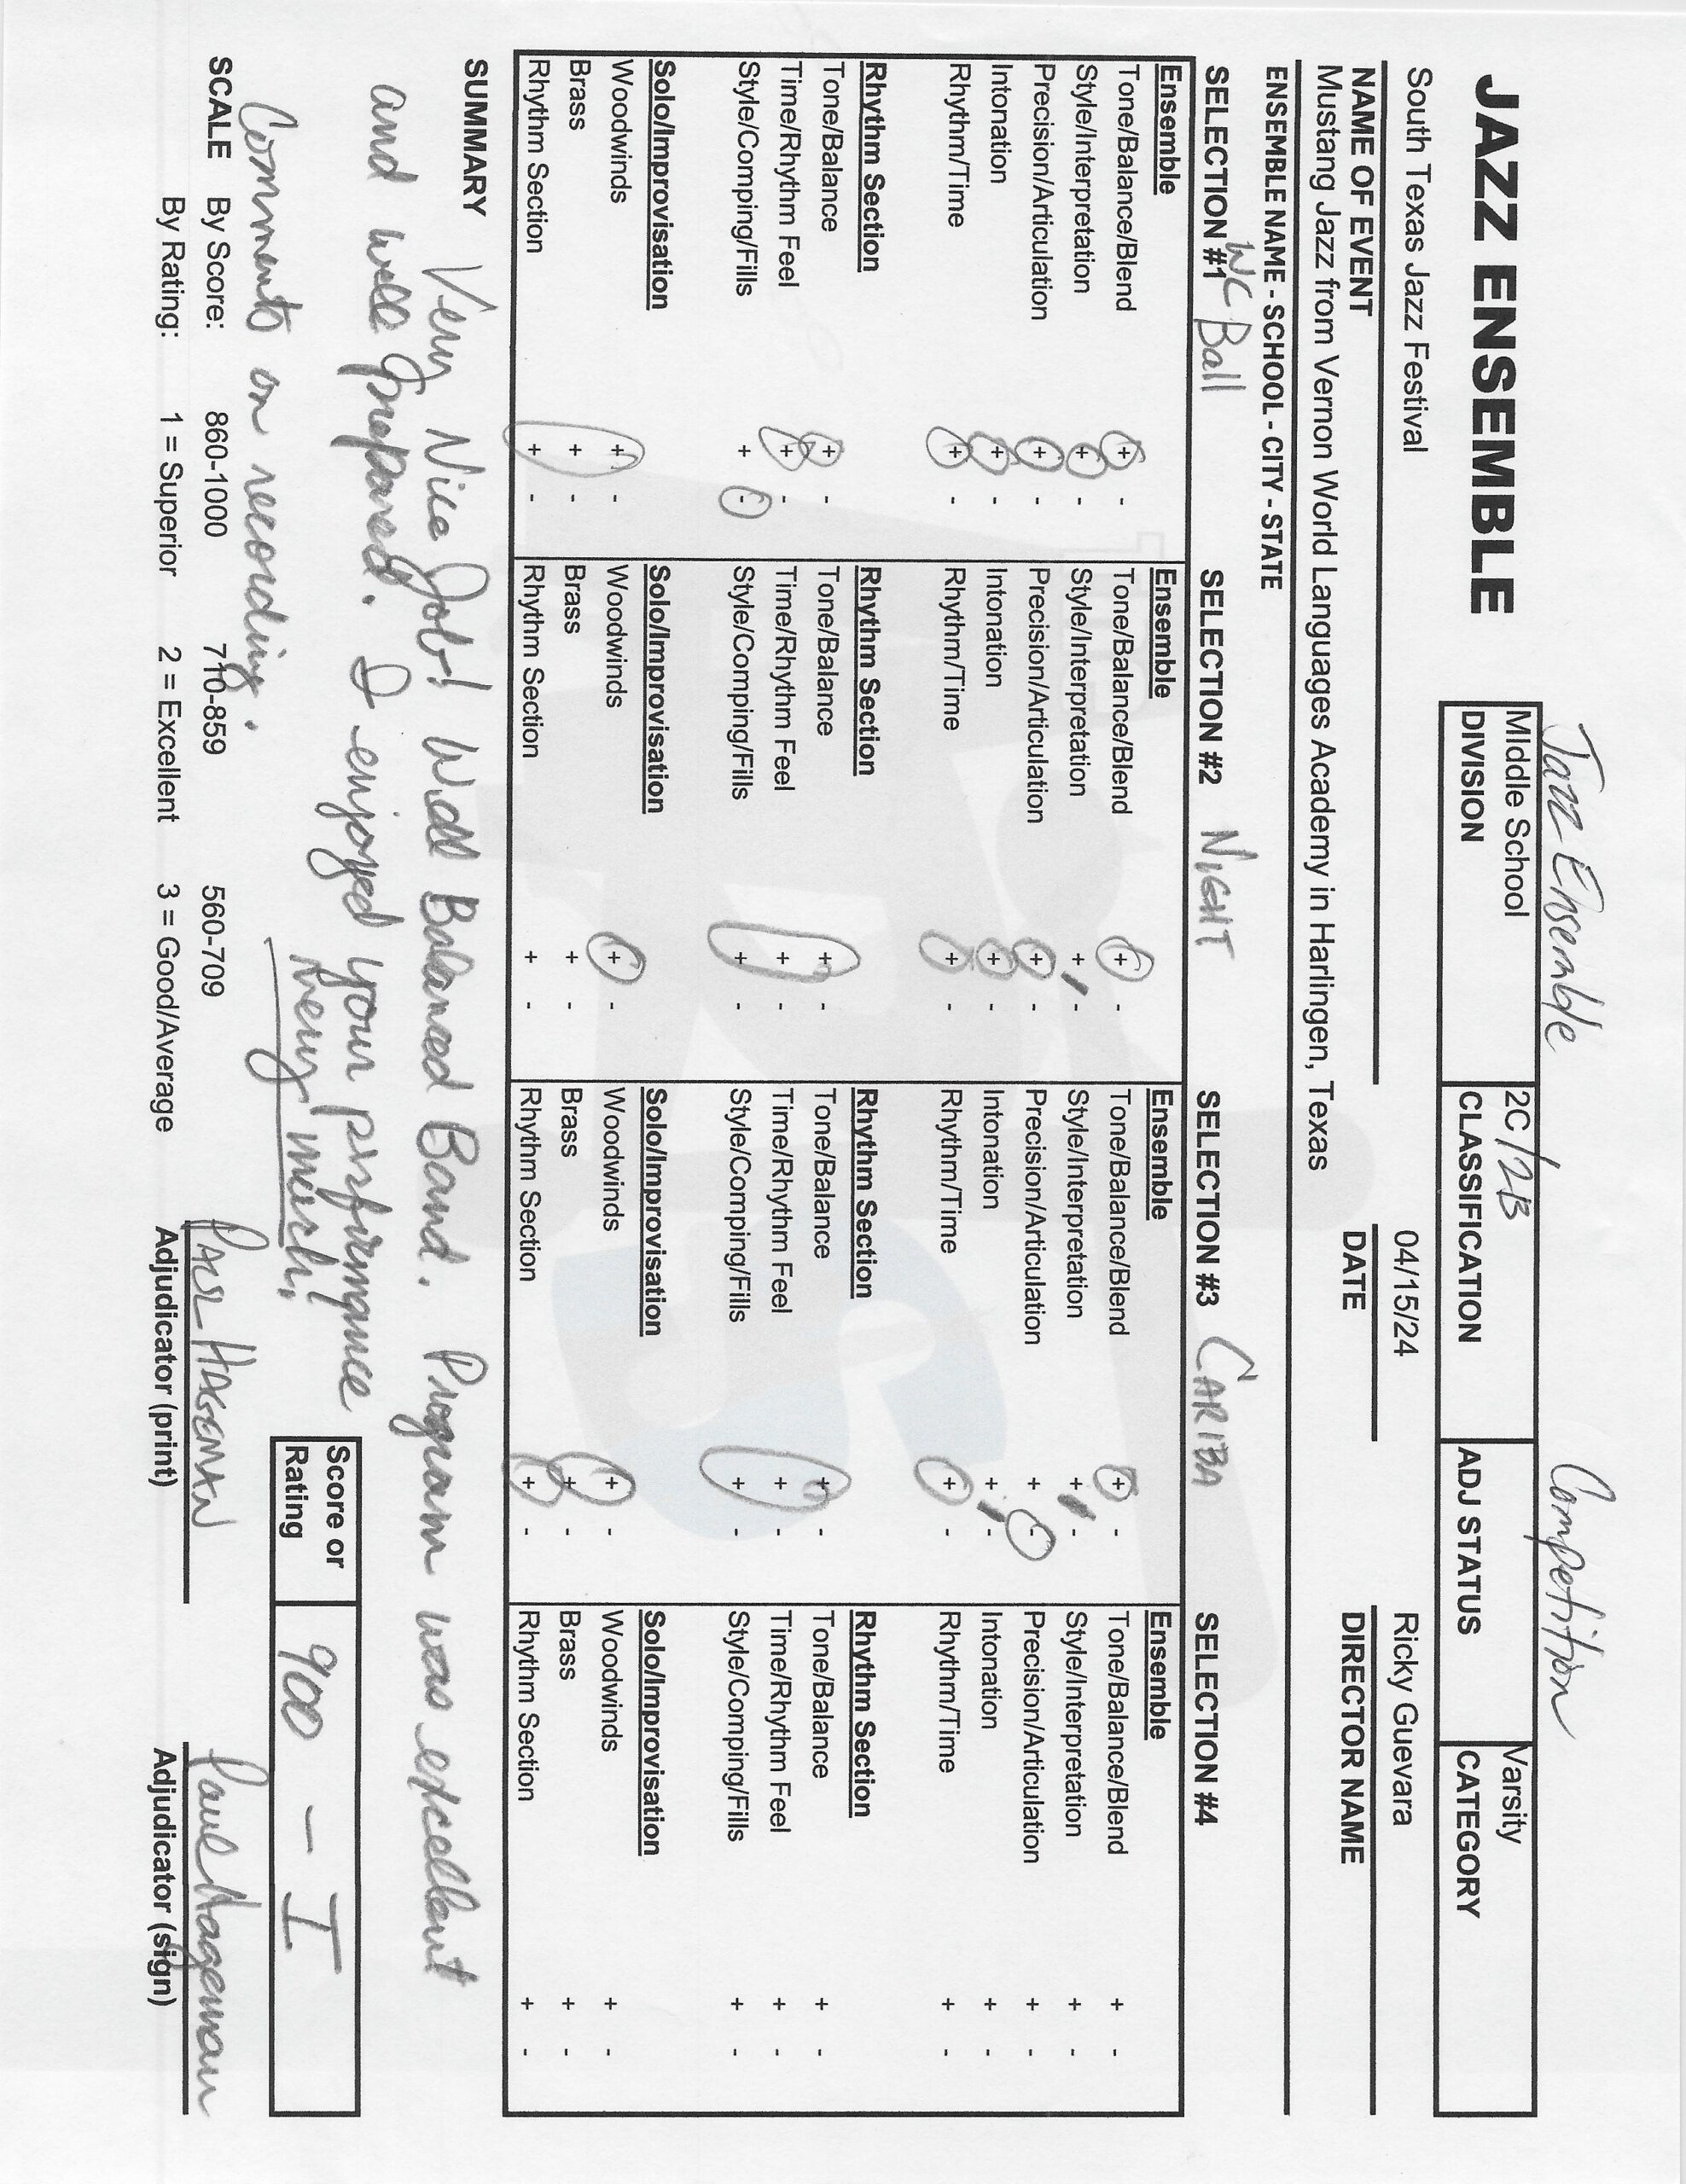 Jazz Ensemble Competition
JAZZ ENSEMBLE
MIddle School 2C/2B Varsity
DIVISION CLASSIFICATION ADJ STATUS CATEGORY
South Texas Jazz Festival 04/15/24 Ricky Guevara
NAME OF EVENT DATE DIRECTOR NAME
Mustang Jazz from Vernon World Languages Academy in Harlingen, Texas
ENSEMBLE NAME - SCHOOL - CITY - STATE
SELECTION #1 WC Ball SELECTION #2 NIGHT SELECTION #3 CARIBA SELECTION #4
Ensemble Ensemble Ensemble Ensemble
Tone/Balance/Blend + - Tone/Balance/Blend + - Tone/Balance/Blend + - Tone/Balance/Blend + -
Style/Interpretation + - Style/Interpretation + - Style/Interpretation + - Style/Interpretation + -
Precision/Articulation + - Precision/Articulation + - Precision/Articulation + - Precision/Articulation + -
Intonation + - Intonation + - Intonation + - Intonation + -
Rhythm/Time + - Rhythm/Time + - Rhythm/Time + - Rhythm/Time + -
Rhythm Section Rhythm Section Rhythm Section Rhythm Section
Tone/Balance + - Tone/Balance + - Tone/Balance + - Tone/Balance + -
Time/Rhythm Feel + - Time/Rhythm Feel + - Time/Rhythm Feel + - Time/Rhythm Feel + -
Style/Comping/Fills + - Style/Comping/Fills + - Style/Comping/Fills + - Style/Comping/Fills + -
Solo/Improvisation Solo/Improvisation Solo/Improvisation Solo/Improvisation
Woodwinds + - Woodwinds + - Woodwinds + - Woodwinds + -
Brass + - Brass + - Brass + - Brass + -
Rhythm Section + - Rhythm Section + - Rhythm Section + - Rhythm Section + -
SUMMARY Very Nice Job! Well Balanced Band. Program was excellent
and well prepared. I enjoyed your performance
very much!
Comments on recording.
Score or Rating 900 - I
SCALE By Score: 860-1000 710-859 560-709 PAUL HAGEMAN Paul Hageman
By Rating: 1 = Superior 2 = Excellent 3 = Good/Average Adjudicator (print) Adjudicator (sign)